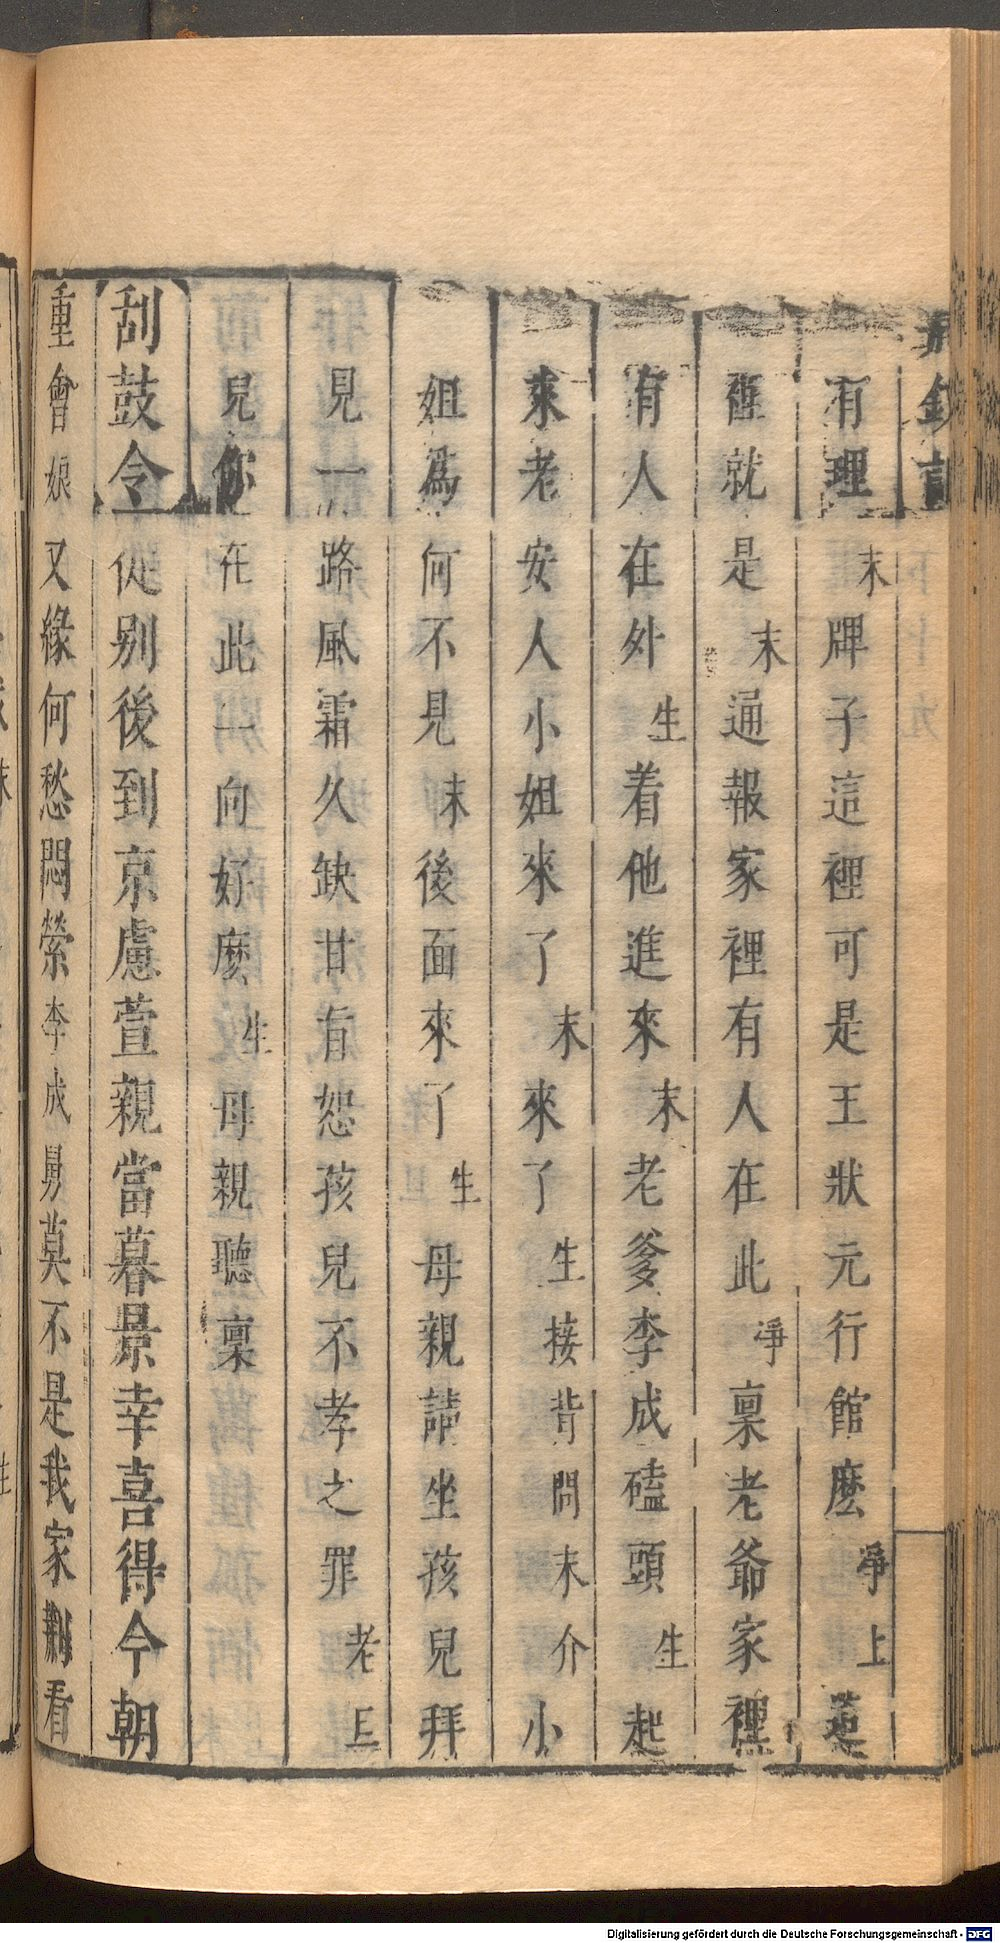 荆釵記
有理末牌子這裡可是王狀元行館麽淨上這
裡就是末通報家裡有人在此淨禀老爺家裡
有人在外生着他進來末老爹李成磕頭生起
來老安人小姐來了末來了生接背問末介小
姐爲何不見末後面來了生母親請坐孩兒拜
見一路風霜久缺甘旨恕孩兒不孝之罪老旦
兒你在此一向好麽生母親聽禀
刮鼓令從别後到京慮萱親當暮景幸喜得今朝
重會娘又緣何愁悶縈李成舅莫不是我家荆看
Digitalisierung gefördert durch die Deutsche Forschungsgemeinschaft - DFG